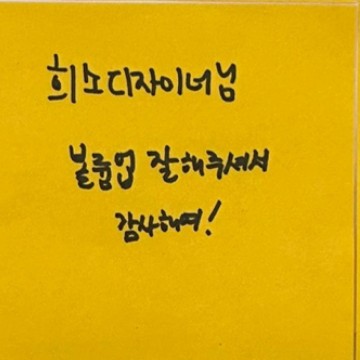 희소디자이너님
볼륨업 잘해주셔서
감사해여!